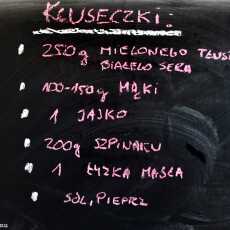 KLUSECZKI:
250g MIELONEGO TŁUS
BIAŁEGO SERA
100-150g MĄKI
1 JAJKO
200g SZPINAKU
1 ŁYŻKA MASŁA
SÓL, PIEPRZ